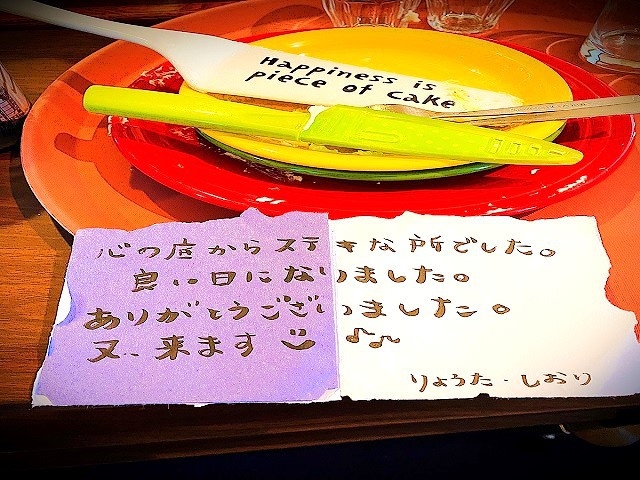 Happiness is
piece of cake
心の底からステキな所でした。
良い日になりました。
ありがとうございました。
又、来ます
りょうた・しおり